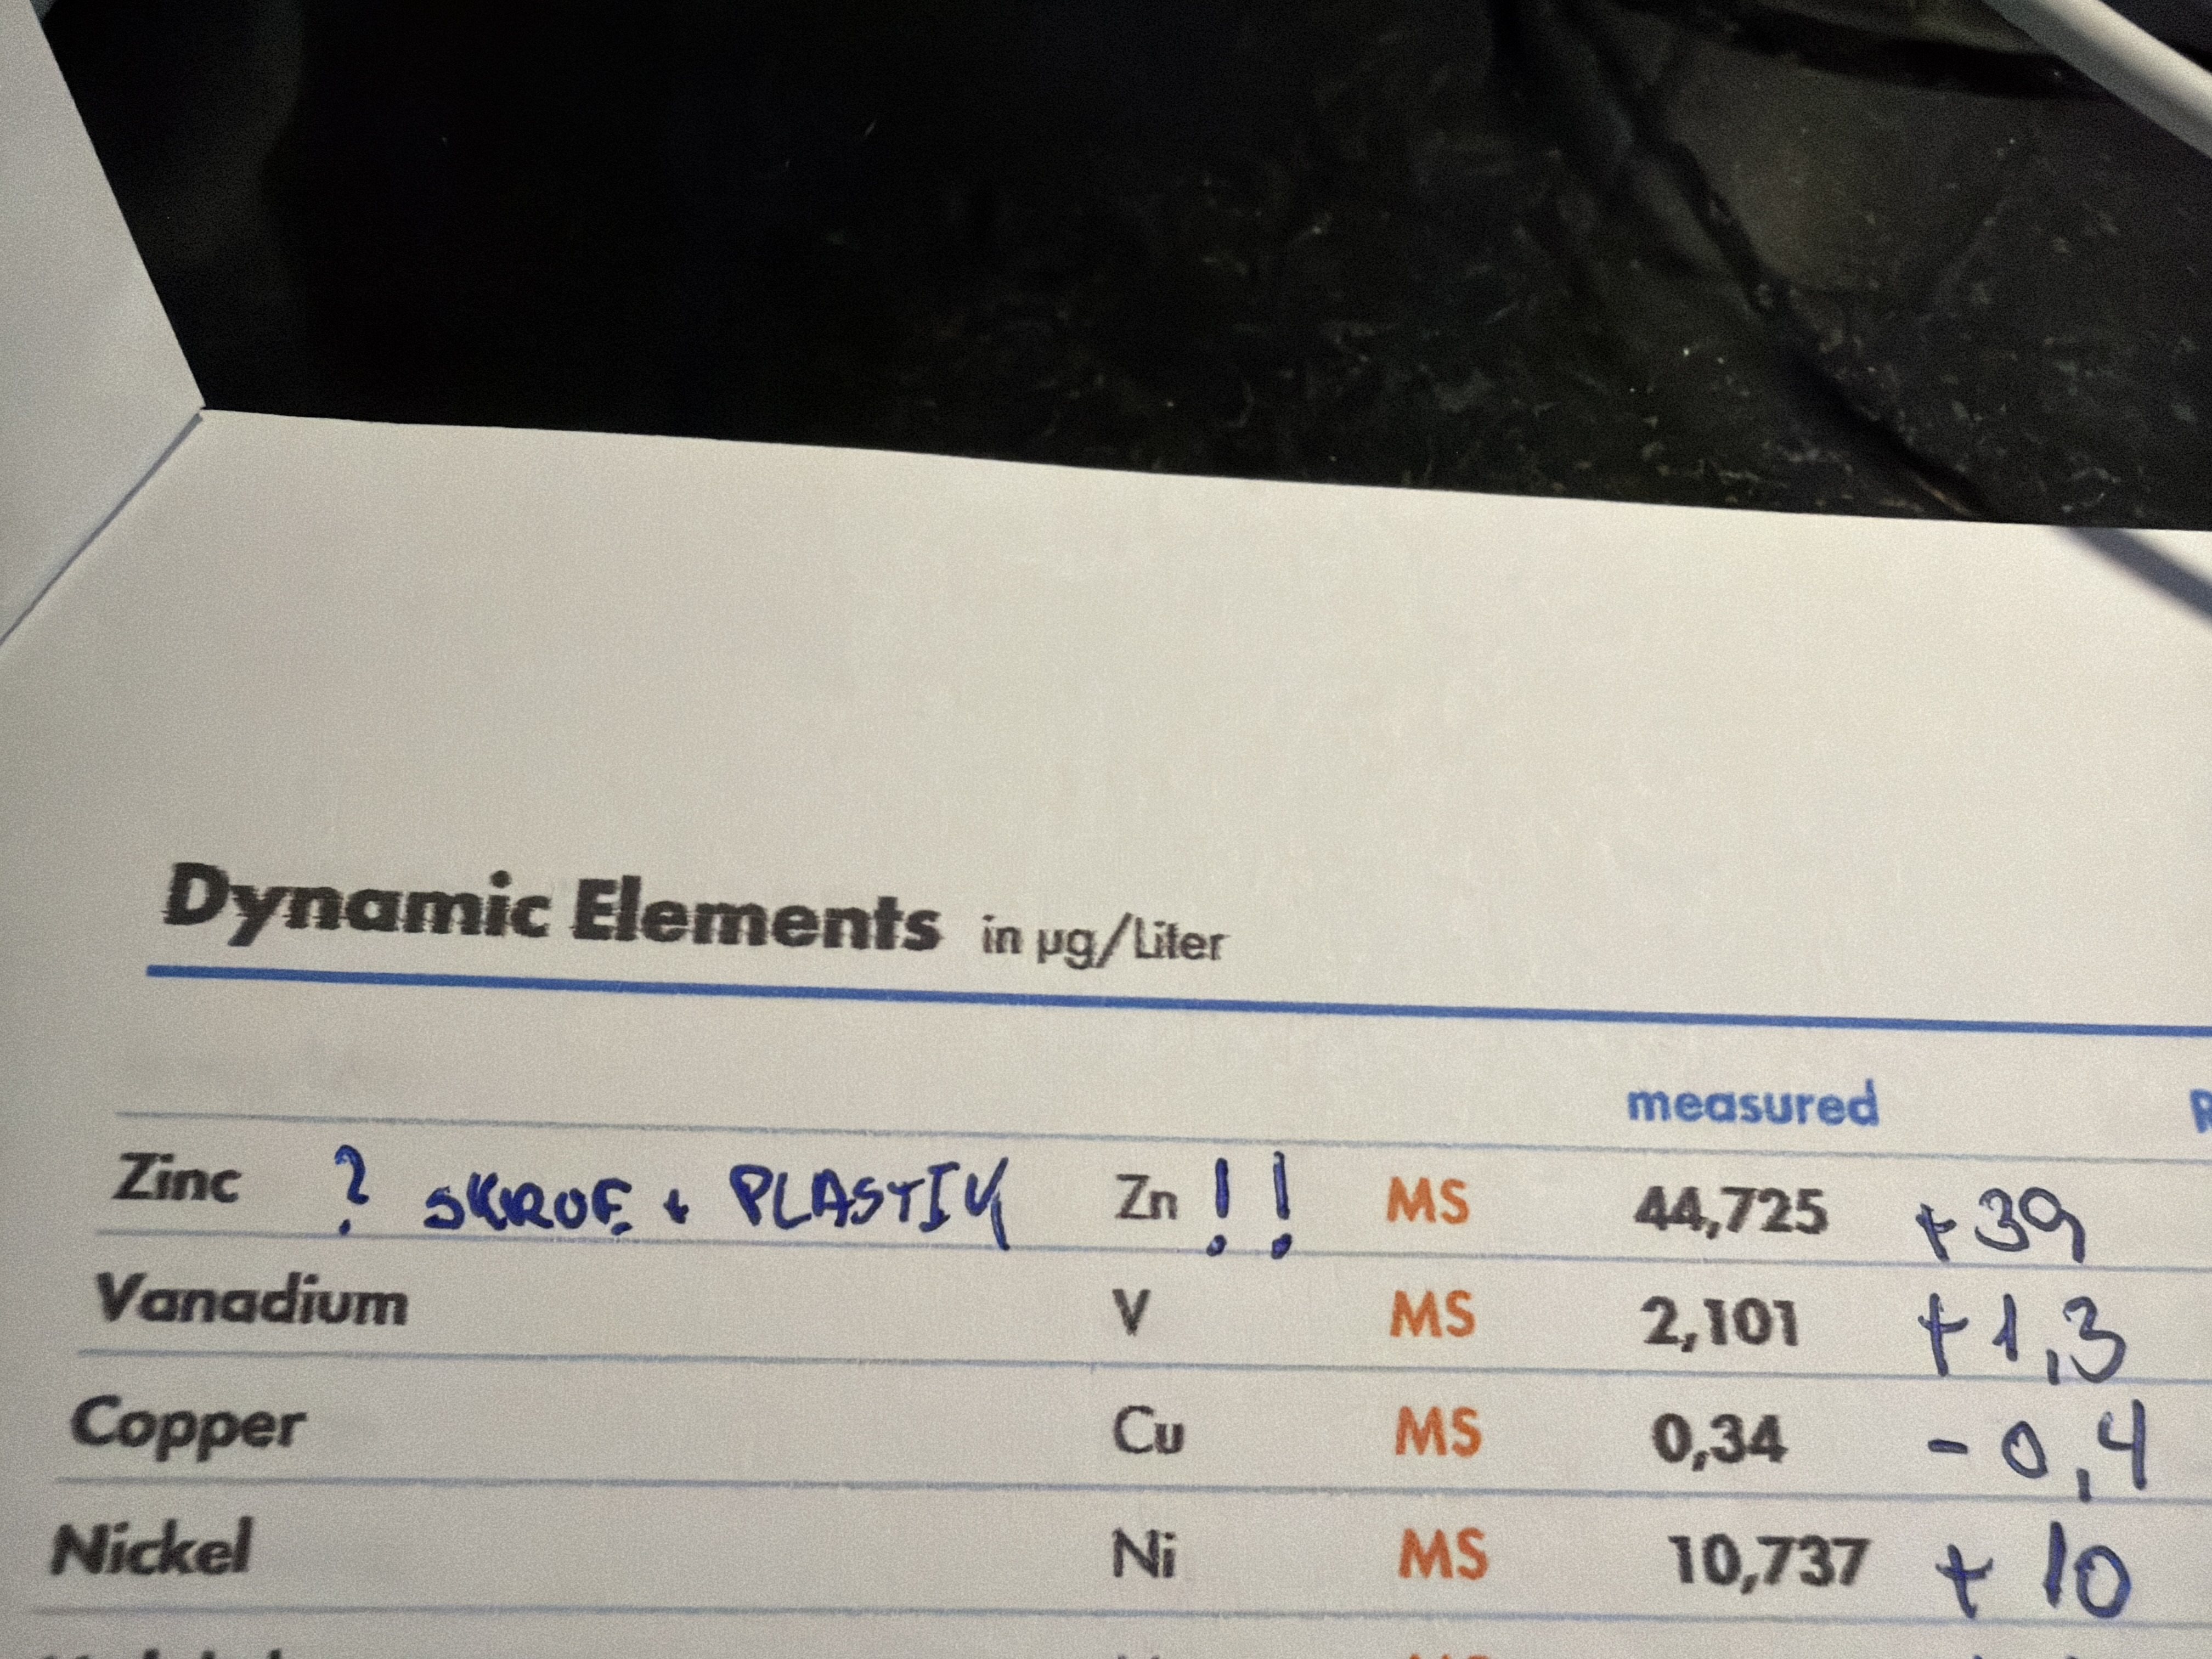 Dynamic Elements in µg/Liter
measured
Zinc ? SKRUE + PLASTIK Zn !! MS 44,725 +39
Vanadium V MS 2,101 +1,3
Copper Cu MS 0,34 - 0,4
Nickel Ni MS 10,737 + 10